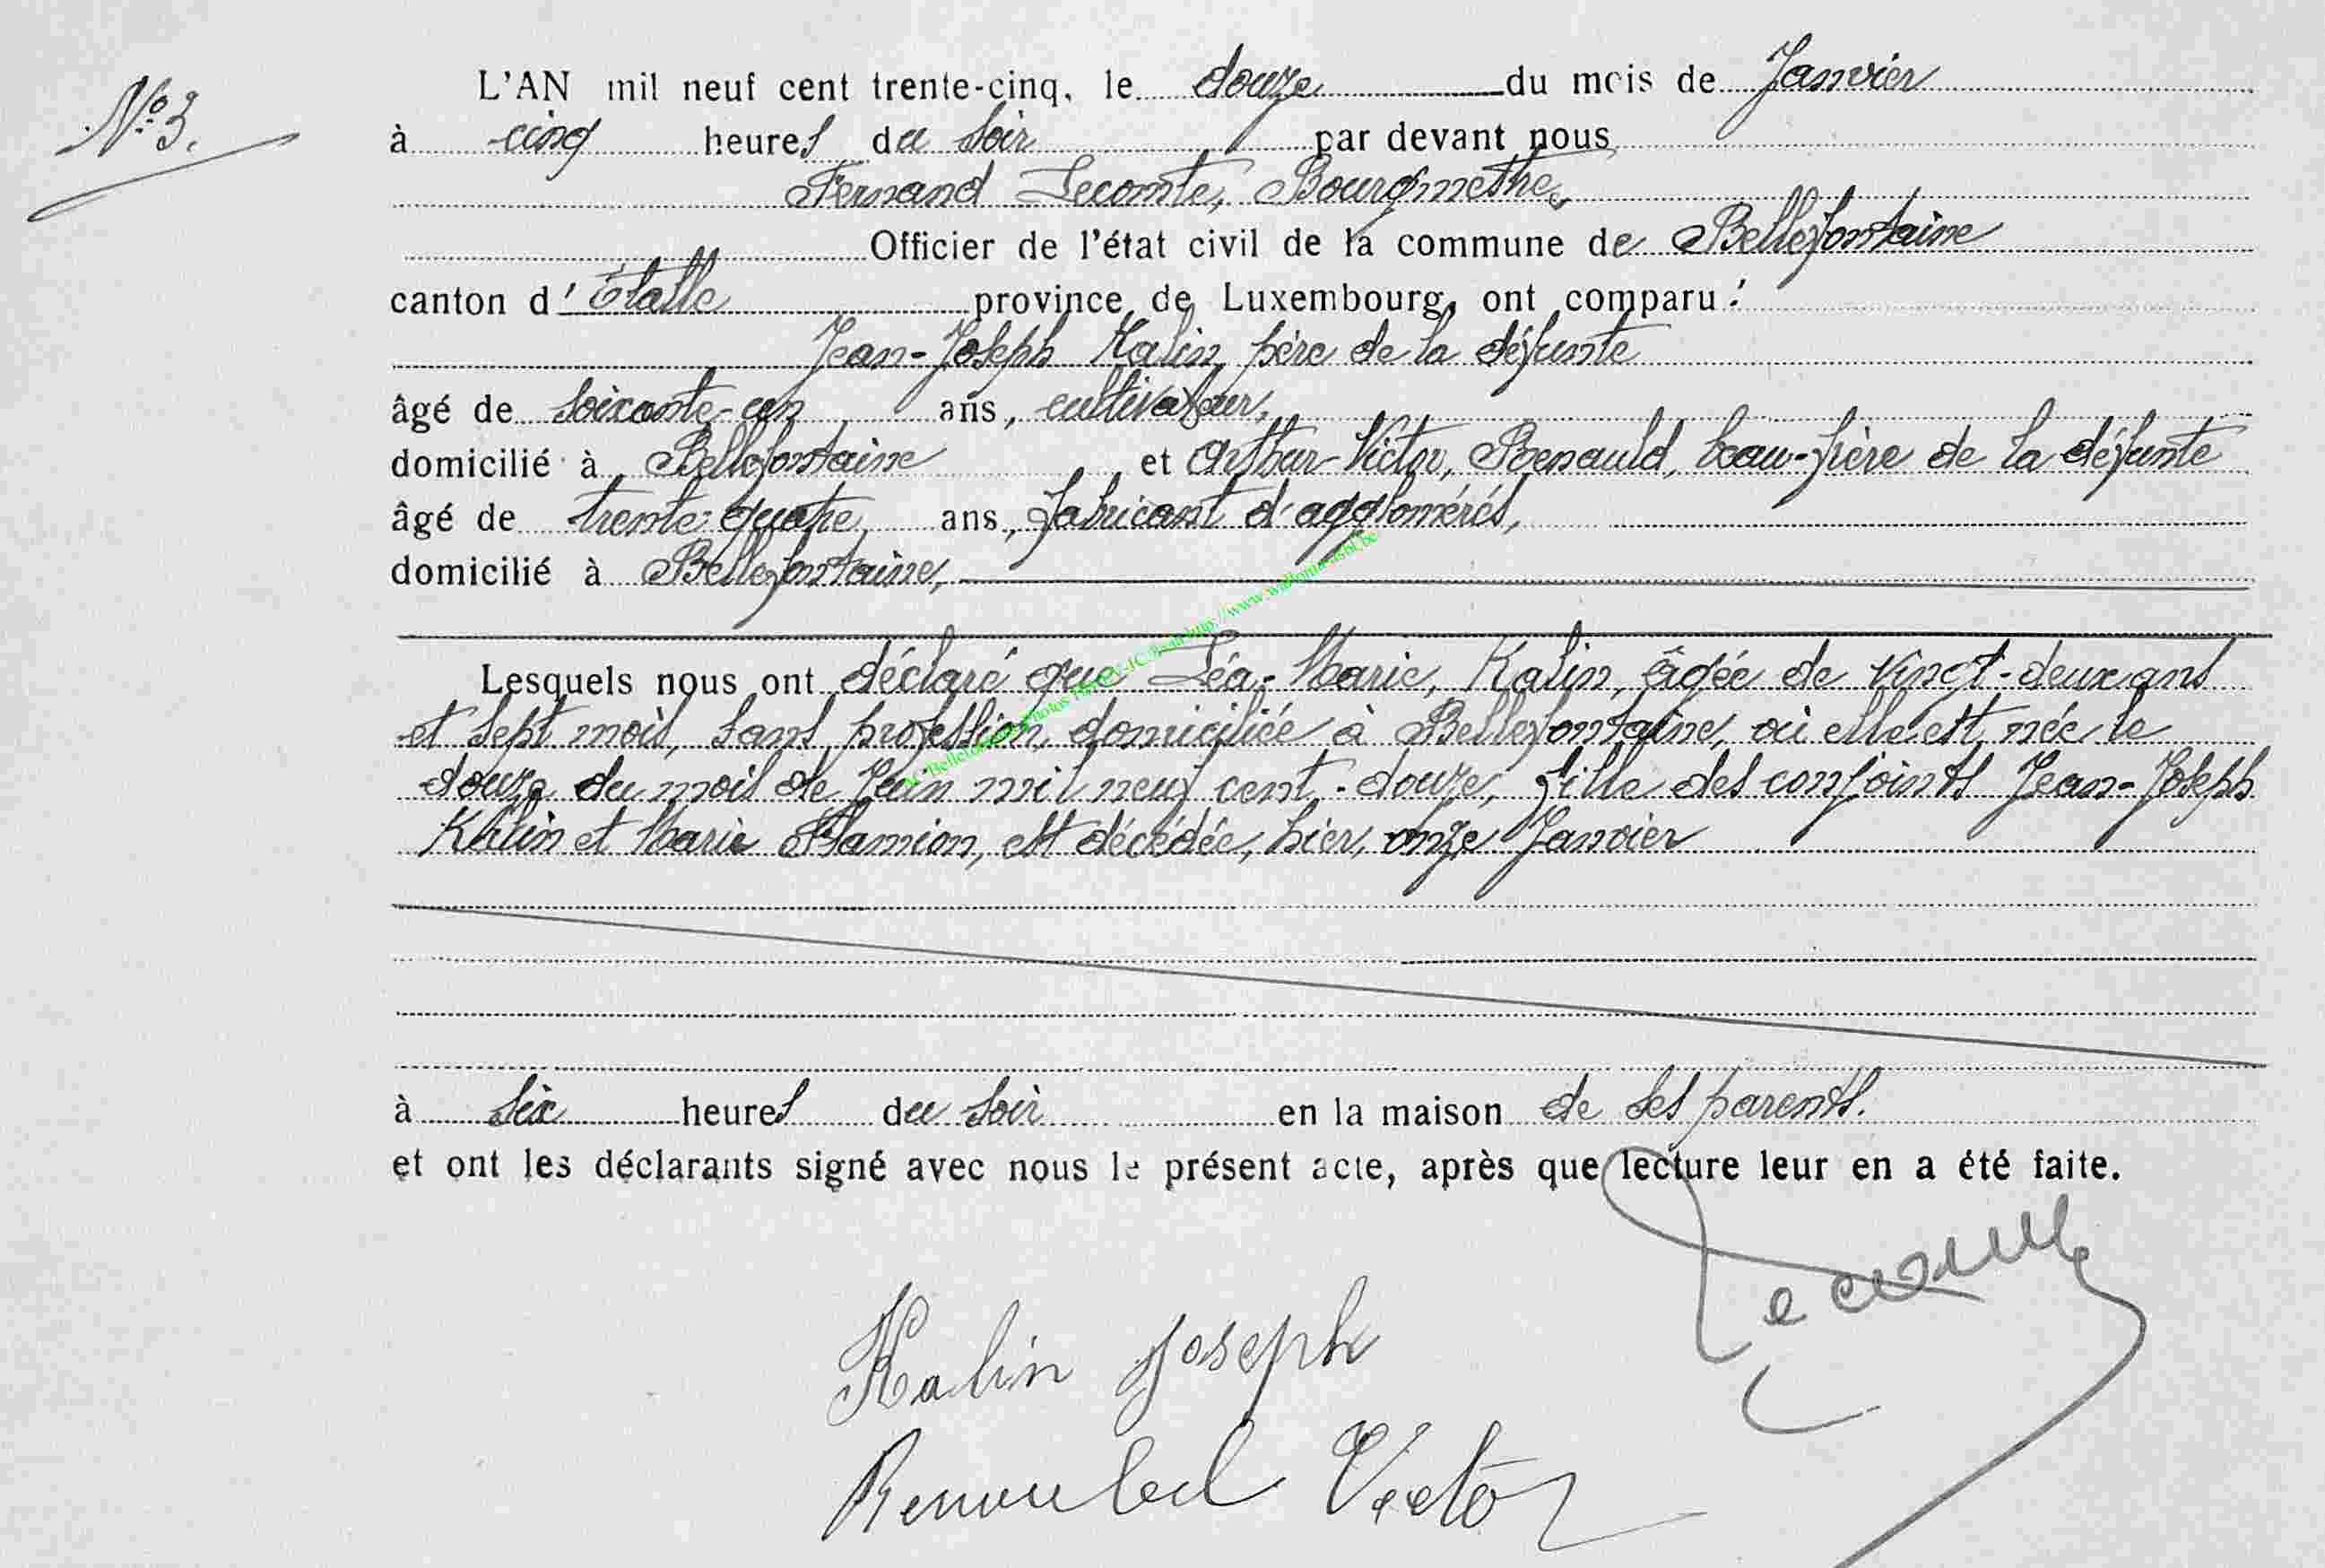 N° 3.
L'AN mil neuf cent trente-cinq, le douze du mois de Janvier
à cinq heures du soir par devant nous
Fernand Lecomte, Bourgmestre,
Officier de l'état civil de la commune de Bellefontaine
canton d'Étalle province de Luxembourg, ont comparu :
Jean-Joseph Kalin, père de la défunte
âgé de soixante-un ans, cultivateur,
domicilié à Bellefontaine et Arthur-Victor, Renauld, beau-frère de la défunte
âgé de trente-quatre ans, fabricant d'agglomérés,
domicilié à Bellefontaine,
Lesquels nous ont déclaré que Léa-Marie, Kalin, âgée de vingt-deux ans
et sept mois, sans profession, domiciliée à Bellefontaine, où elle est née le
douze du mois de Juin mil neuf cent-douze, fille des conjoints Jean-Joseph
Kalin et Marie Flamion, est décédée, hier, onze Janvier
à six heures du soir en la maison de ses parents.
et ont les déclarants signé avec nous le présent acte, après que lecture leur en a été faite.
Lecomte
Kalin Joseph
Renauld Victor